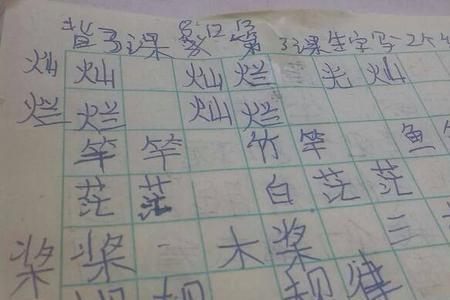 背3课 家 第3课生字写2个
灿 灿 灿 烂 光 灿
烂 烂 灿 烂
竿 竿 竹 竿 鱼
茫 茫 白 茫 茫
桨 桨 木 桨 三
规